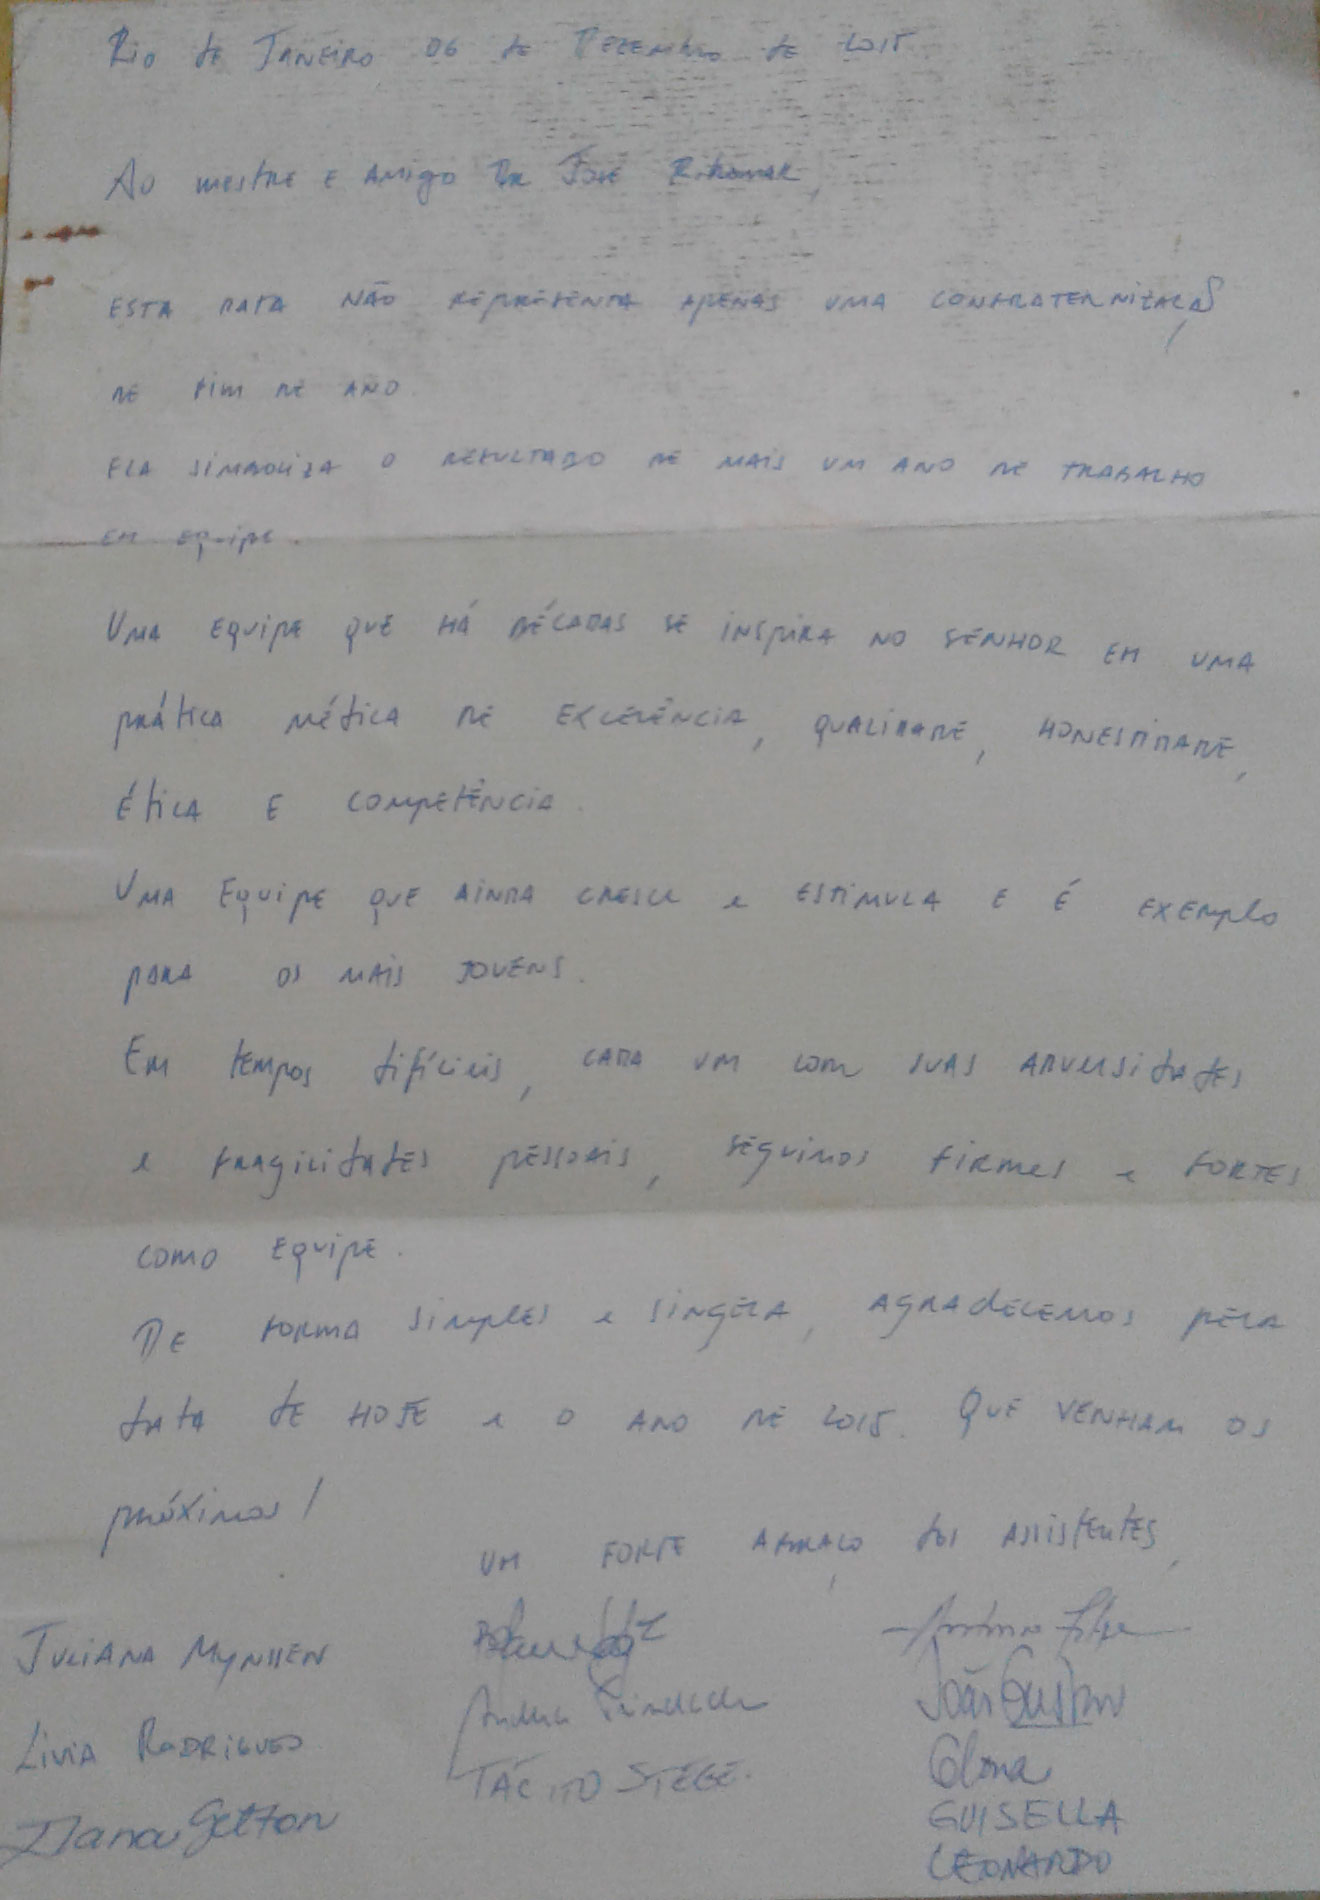 Rio de Janeiro 06 de Dezembro de 2015
Ao mestre e amigo Dr José Ribamar,
Esta data não representa apenas uma confraternização
de fim de ano.
Ela simboliza o resultado de mais um ano de trabalho
em equipe.
Uma equipe que há décadas se inspira no senhor em uma
prática médica de excelência, qualidade, honestidade,
ética e competência.
Uma equipe que ainda cresce e estimula e é exemplo
para os mais jovens.
Em tempos difíceis, cada um com suas adversidades
e fragilidades pessoais, seguimos firmes e fortes
como equipe.
De forma simples e singela, agradecemos pela
data de hoje e o ano de 2015. Que venham os
próximos!
Um forte abraço dos assistentes,
Juliana Mynssen
Livia Rodrigues
Tácito Stege.
João Gustavo
GUISELLA
LEONARDO